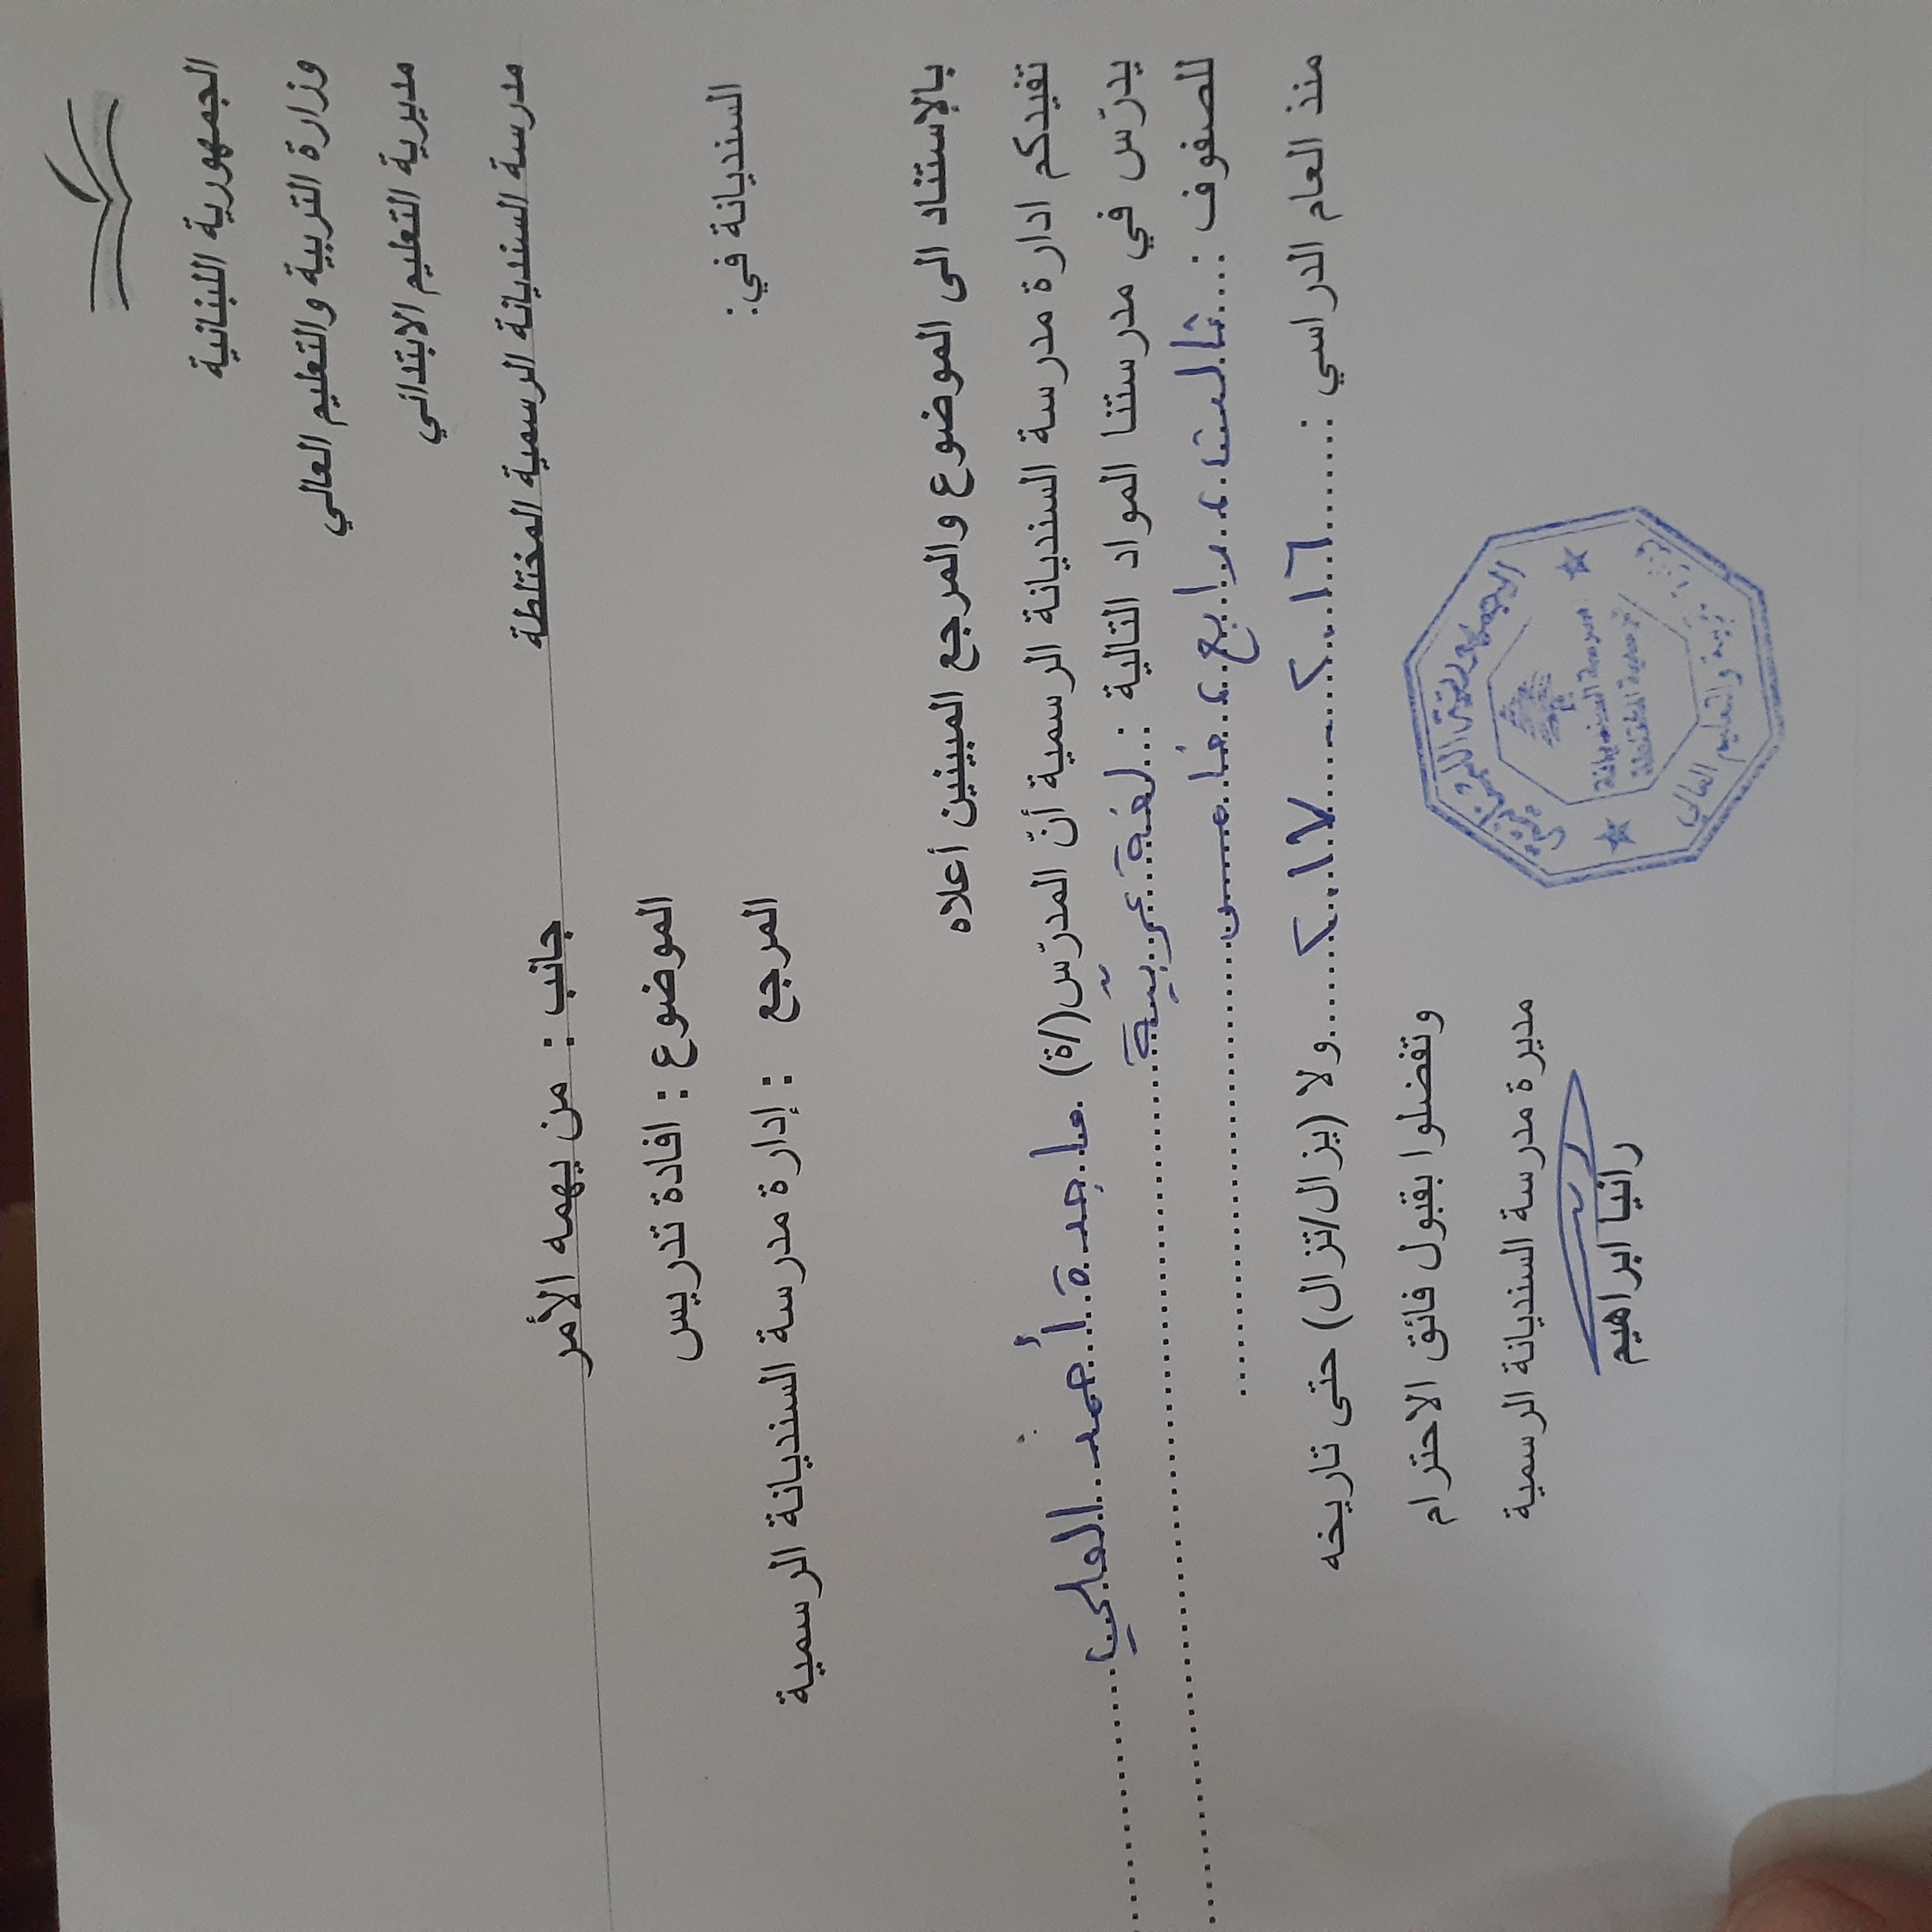 الجمهورية اللبنانية
وزارة التربية والتعليم العالي
مديرية التعليم الابتدائي
مدرسة السنديانة الرسمية المختلطة
جانب : من يهمه الأمر
الموضوع : افادة تدريس
السنديانة في:
المرجع : إدارة مدرسة السنديانة الرسمية
بالإستناد الى الموضوع والمرجع المبينين أعلاه
تفيدكم ادارة مدرسة السنديانة الرسمية أنّ المدرّس(/ة) ماجدة أحمد العلي
يدرّس في مدرستنا المواد التالية : لغة عربيّة
للصفوف : ثالث، رابع، خامس
منذ العام الدراسي : ٢٠١٦ - ٢٠١٧ ولا (يزال/تزال) حتى تاريخه
وتفضلوا بقبول فائق الاحترام
مديرة مدرسة السنديانة الرسمية
رانيا ابراهيم
الجمهورية اللبنانية
وزارة التربية والتعليم العالي
مدرسة السنديانة
الرسمية المختلطة